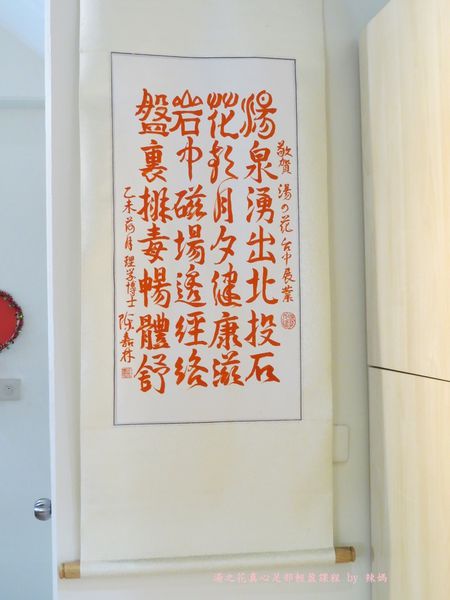 敬賀 湯の花 台中展業
湯泉湧出北投石
花朝月夕健康滋
岩巾磁場透經絡
盤裏排毒暢體舒
乙未荷月 理学博士 陈嘉林
湯之花真心足部輕盈課程 by 辣媽